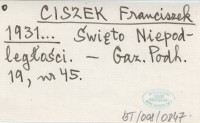 CISZEK Franciszek
1931... Święto Niepod-
ległości. – Gaz. Podh.
19, nr 45.
BT/001/0847